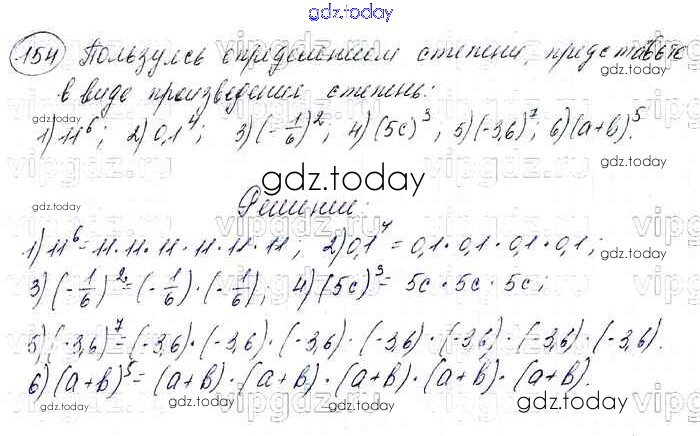 gdz.today
154 Пользуясь определением степени, представьте
в виде произведения степень:
1) 11⁶; 2) 0,1⁴; 3) (-1/6)², 4) (5c)³, 5) (-3,6)⁷; 6) (a+b)⁵.
gdz.today
Решение:
1) 11⁶ = 11·11·11·11·11·11; 2) 0,1⁴ = 0,1·0,1·0,1·0,1;
3) (-1/6)² = (-1/6)·(-1/6), 4) (5c)³ = 5c·5c·5c;
5) (-3,6)⁷ = (-3,6)·(-3,6)·(-3,6)·(-3,6)·(-3,6)·(-3,6)·(-3,6).
6) (a+b)⁵ = (a+b)·(a+b)·(a+b)·(a+b)·(a+b).
gdz.today